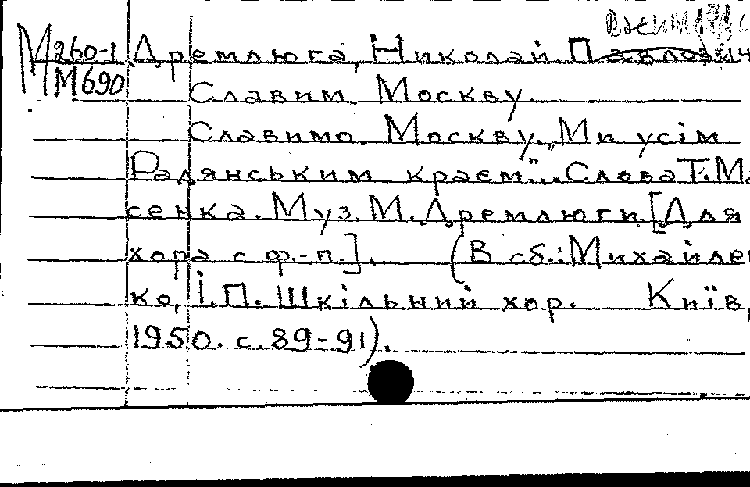 М260-1 Дремлюга, Николай
М690
Славим Москву.
Славимо Москву. „Ми усім
Радянським краєм"... Слова Т. Ма
сенка. Муз. М. Дремлюги. [Для
хора с ф.-п.]. (В сб.: Михайлен
ко, І. П. Шкільний хор. Київ,
1950. с. 89-91).